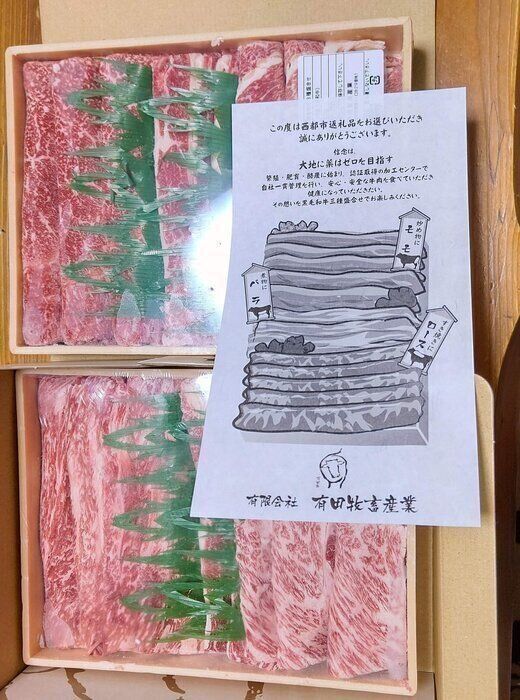 この度は西都市返礼品をお選びいただき
誠にありがとうございます。
信念は、
大地に薬はゼロを目指す
繁殖・肥育・酪産に始まり、認証取得の加工センターで
自社一貫管理を行い、安心・安全な牛肉を食べていただき
健康になっていただきたい。
その想いを黒毛和牛三種盛合せでお楽しみください。
炒め物に
モモ
煮物に
バラ
すき焼きに
ロース
有限会社 有田牧畜産業